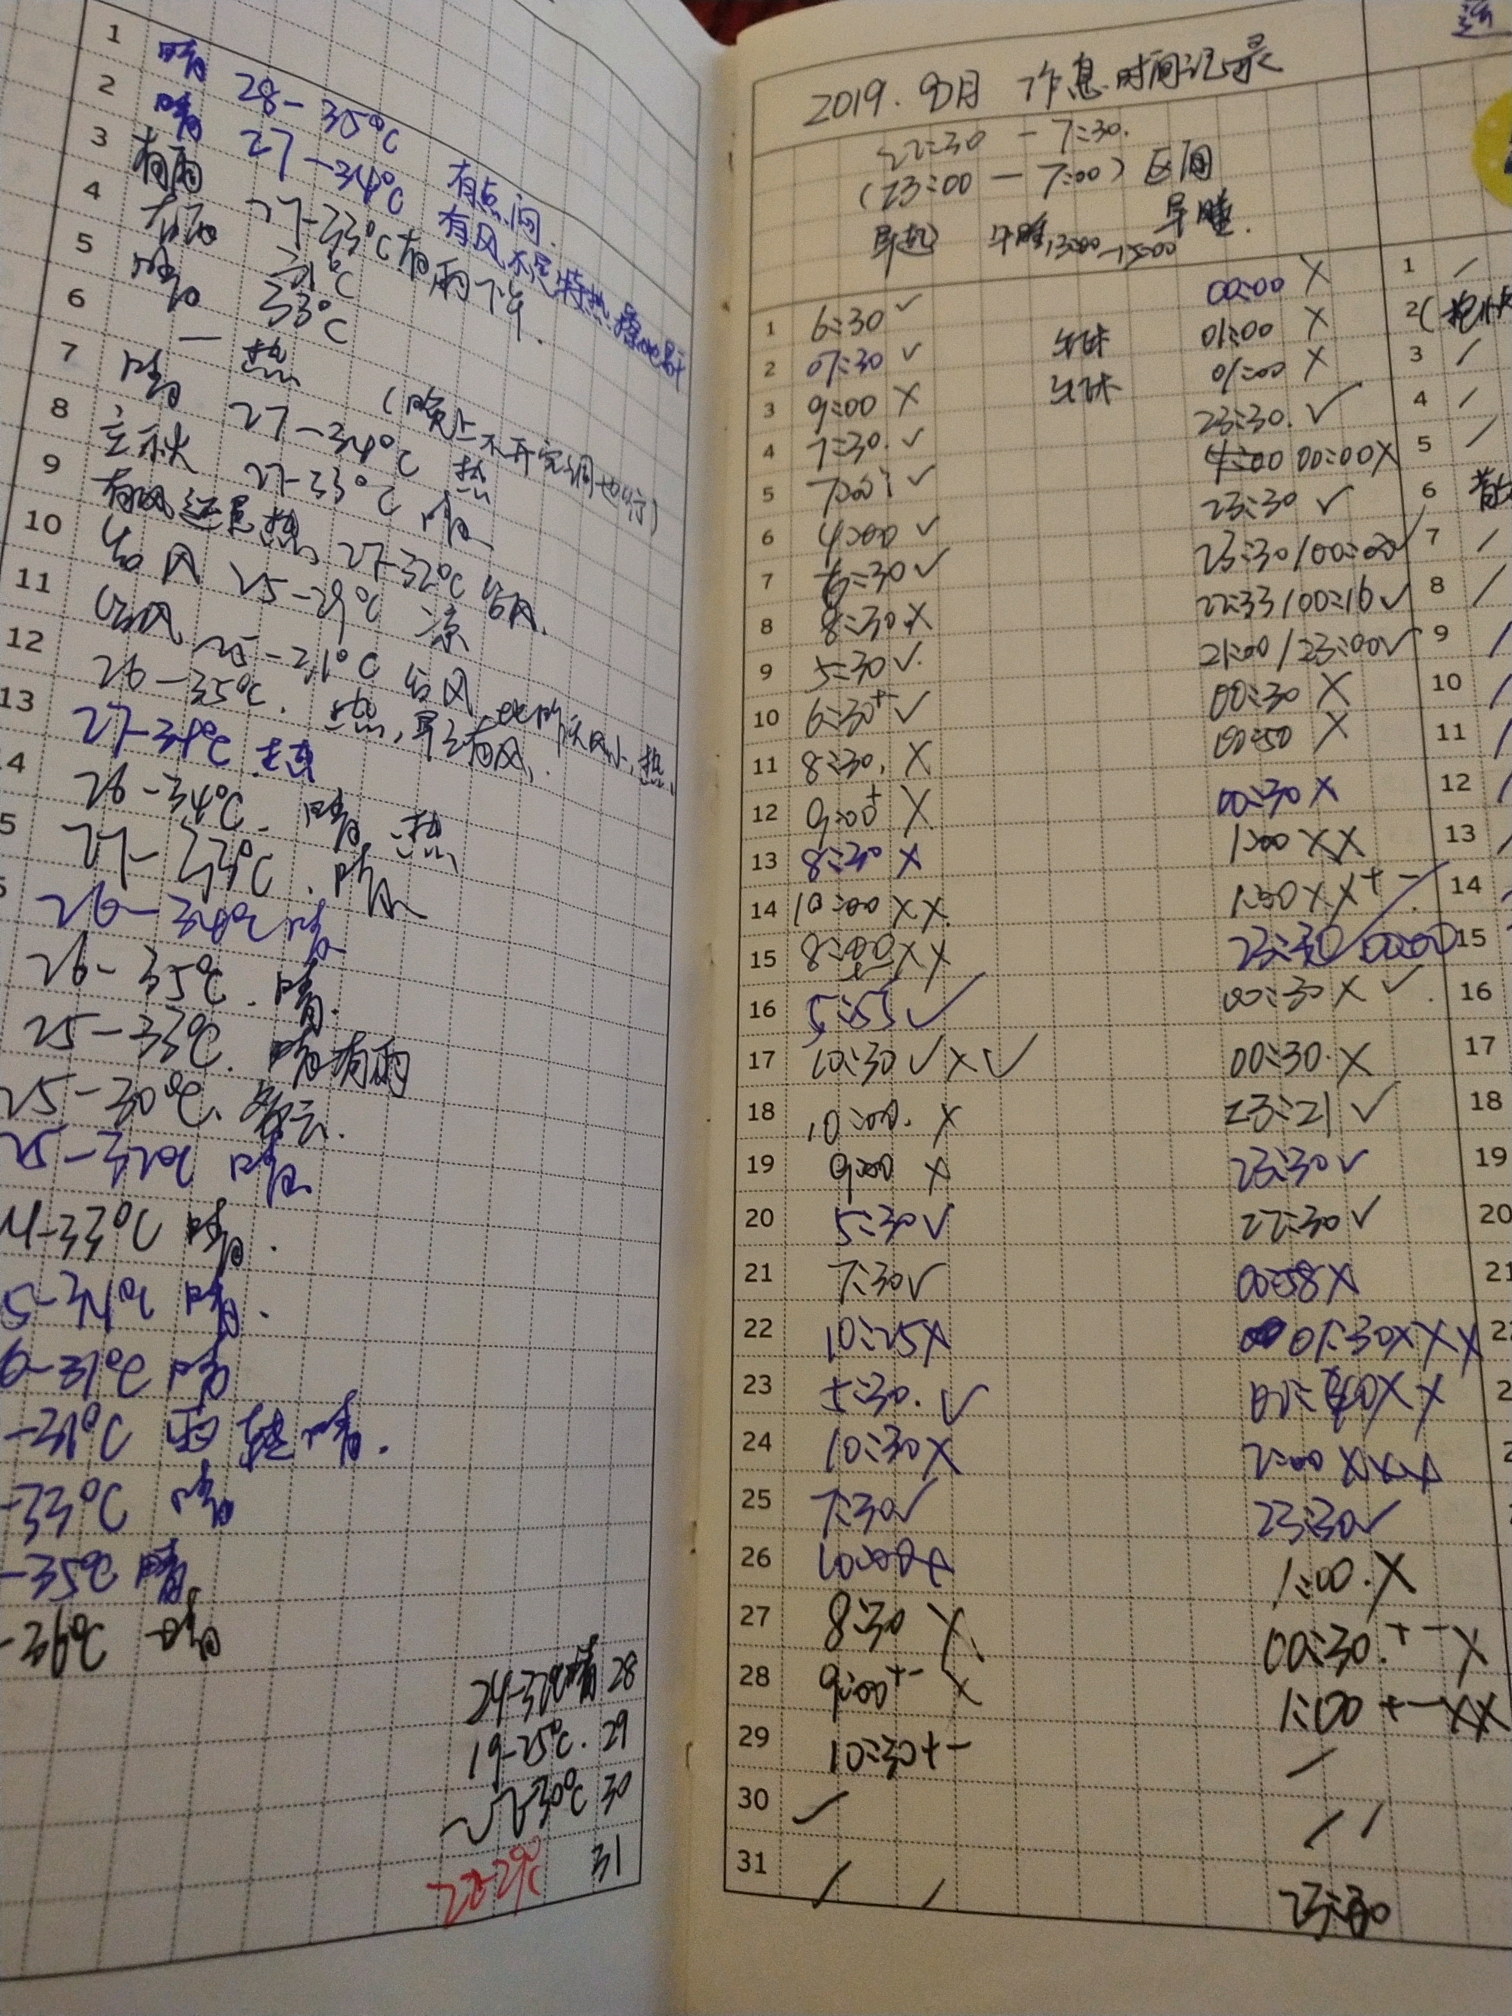 1
晴 28-35℃ 有点闷.
2
晴 27-34℃ 有风不是特热
3
有雨 27-33℃ 有雨下午.
4
有雨 31℃
5
晴 33℃
6
— 热 (晚上不开空调也行)
7
晴 27-34℃ 热
8
立秋 27-33℃ 晴
9
有风还是热, 27-32℃ 台风.
10
台风 25-29℃ 凉
11
台风 25-31℃ 台风
12
26-35℃. 热, 早上有风,
13
27-34℃
26-34℃. 晴 热
27-33℃. 晴
26-34℃ 晴
26-35℃. 晴.
25-33℃. 晴有雨
25-30℃. 多云.
25-32℃ 晴
4-33℃ 晴.
5-34℃ 晴.
6-31℃ 晴
-31℃ 雨转晴.
-33℃ 晴
-35℃ 晴
-36℃ 晴
24-32℃ 晴 28
19-25℃. 29
30℃ 30
22-29℃ 31
2019. 8月 作息时间记录
22:30 - 7:30.
(23:00 - 7:00) 区间
早起 午睡 13:00-15:00 早睡.
1 6:30 ✓ 00:00 X
2 07:30 ✓ 午休 01:00 X
3 9:00 X 午休 01:00 X
4 7:30. ✓ 23:30. ✓
5 7:00 ✓ 00:00 X
6 4:00 ✓ 23:30 ✓
7 6:30 ✓ 23:30/00:00 ✓
8 8:30 X 22:33/00:16 ✓
9 5:30 ✓. 21:00/23:00 ✓
10 6:30+ ✓ 00:30 X
11 8:30. X 00:50 X
12 9:00+ X 00:30 X
13 8:30 X 1:00 XX
14 10:00 XX. 1:30 XX+-.
15 8:00 XX 23:30/00:00
16 5:55 ✓ 00:30 X ✓.
17 10:30 ✓X✓ 00:30. X
18 10:00. X 23:21 ✓
19 9:00 X 23:30 ✓
20 5:30 ✓ 22:30 ✓
21 7:30 ✓ 00:58 X
22 10:25 X 01:30 XXX
23 5:30. ✓ XX
24 10:30 X 2:00 XXX
25 7:30 ✓ 23:30 ✓
26 10:00 X 1:00. X
27 8:30 X 00:30.+- X
28 9:00+- X 1:00 +- XX
29 10:30+- /
30 / / /
31 / / 23:30
1 /
2(
3 /
4 /
5 /
6
7 /
8 /
9 /
10 /
11 /
12 /
13 /
14
15
16
17
18
19
20
21